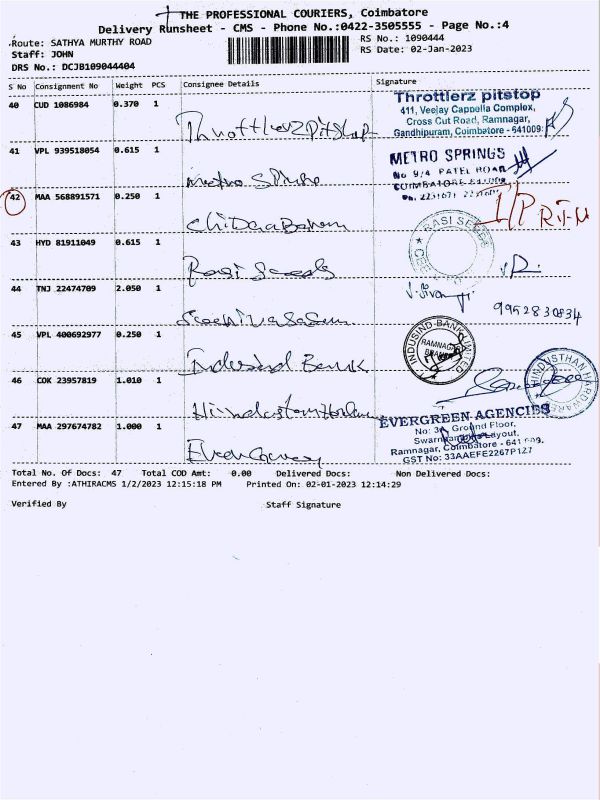 THE PROFESSIONAL COURIERS, Coimbatore
Delivery Runsheet - CMS - Phone No.:0422-3505555 - Page No.:4
Route: SATHYA MURTHY ROAD
RS No.: 1090444
Staff: JOHN
RS Date: 02-Jan-2023
DRS No.: DCJB109044404
S No Consignment No Weight PCS Consignee Details Signature
40 CUD 1086984 0.370 1
Throttlerz Pitstop
Throttlerz pitstop
411, Veejay Cappella Complex,
Cross Cut Road, Ramnagar,
Gandhipuram, Coimbatore - 641009.
41 VPL 939518054 0.615 1
Metro Springs
METRO SPRINGS
No 9/4 PATEL ROAD
COIMBATORE
Ph. 2231671
42 MAA 568891571 0.250 1
I/P
43 HYD 81911049 0.615 1
Rasi Seeds
RASI SEEDS
44 TNJ 22474709 2.050 1
9952830834
45 VPL 400692977 0.250 1
Indusind Bank
INDUSIND BANK LIMITED
RAMNAGAR
BRANCH
46 COK 23957819 1.010 1
HINDUSTHAN HARDWARES
47 MAA 297674782 1.000 1
EVERGREEN AGENCIES
Ground Floor,
Layout,
Ramnagar, Coimbatore - 641 009.
GST No: 33AAEFE2267P1Z7
Total No. Of Docs: 47 Total COD Amt: 0.00 Delivered Docs: Non Delivered Docs:
Entered By :ATHIRACMS 1/2/2023 12:15:18 PM Printed On: 02-01-2023 12:14:29
Verified By Staff Signature